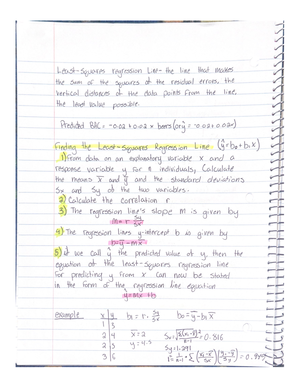 Least-Squares Regression Line - the line that makes
the sum of the squares of the residual errors, the
vertical distances of the data points from the line,
the least value possible.
Predicted BAC = -0.02 + 0.02 x beers (or ŷ = -0.02 + 0.02x)
Finding the Least-Squares Regression Line (ŷ = b₀ + b₁x)
1) From data on an explanatory variable x and a
response variable y for n individuals, Calculate
the means x̄ and ȳ and the standard deviations
Sx and Sy of the two variables.
2) Calculate the correlation r
3) The regression line's slope m is given by
m = r Sy/Sx
4) The regression lines y-intercept b is given by
b = ȳ - mx̄
5) If we call ŷ the predicted value of y, then the
equation of the least-squares regression line
for predicting y from x can now be stated
in the form of the regression line equation
ŷ = mx + b
example: x y b₁ = r · Sy/Sx b₀ = ȳ - b₁x̄
1 3
2 4 x̄ = 2 = 0.816
2 5 Sy = 1.291
3 6